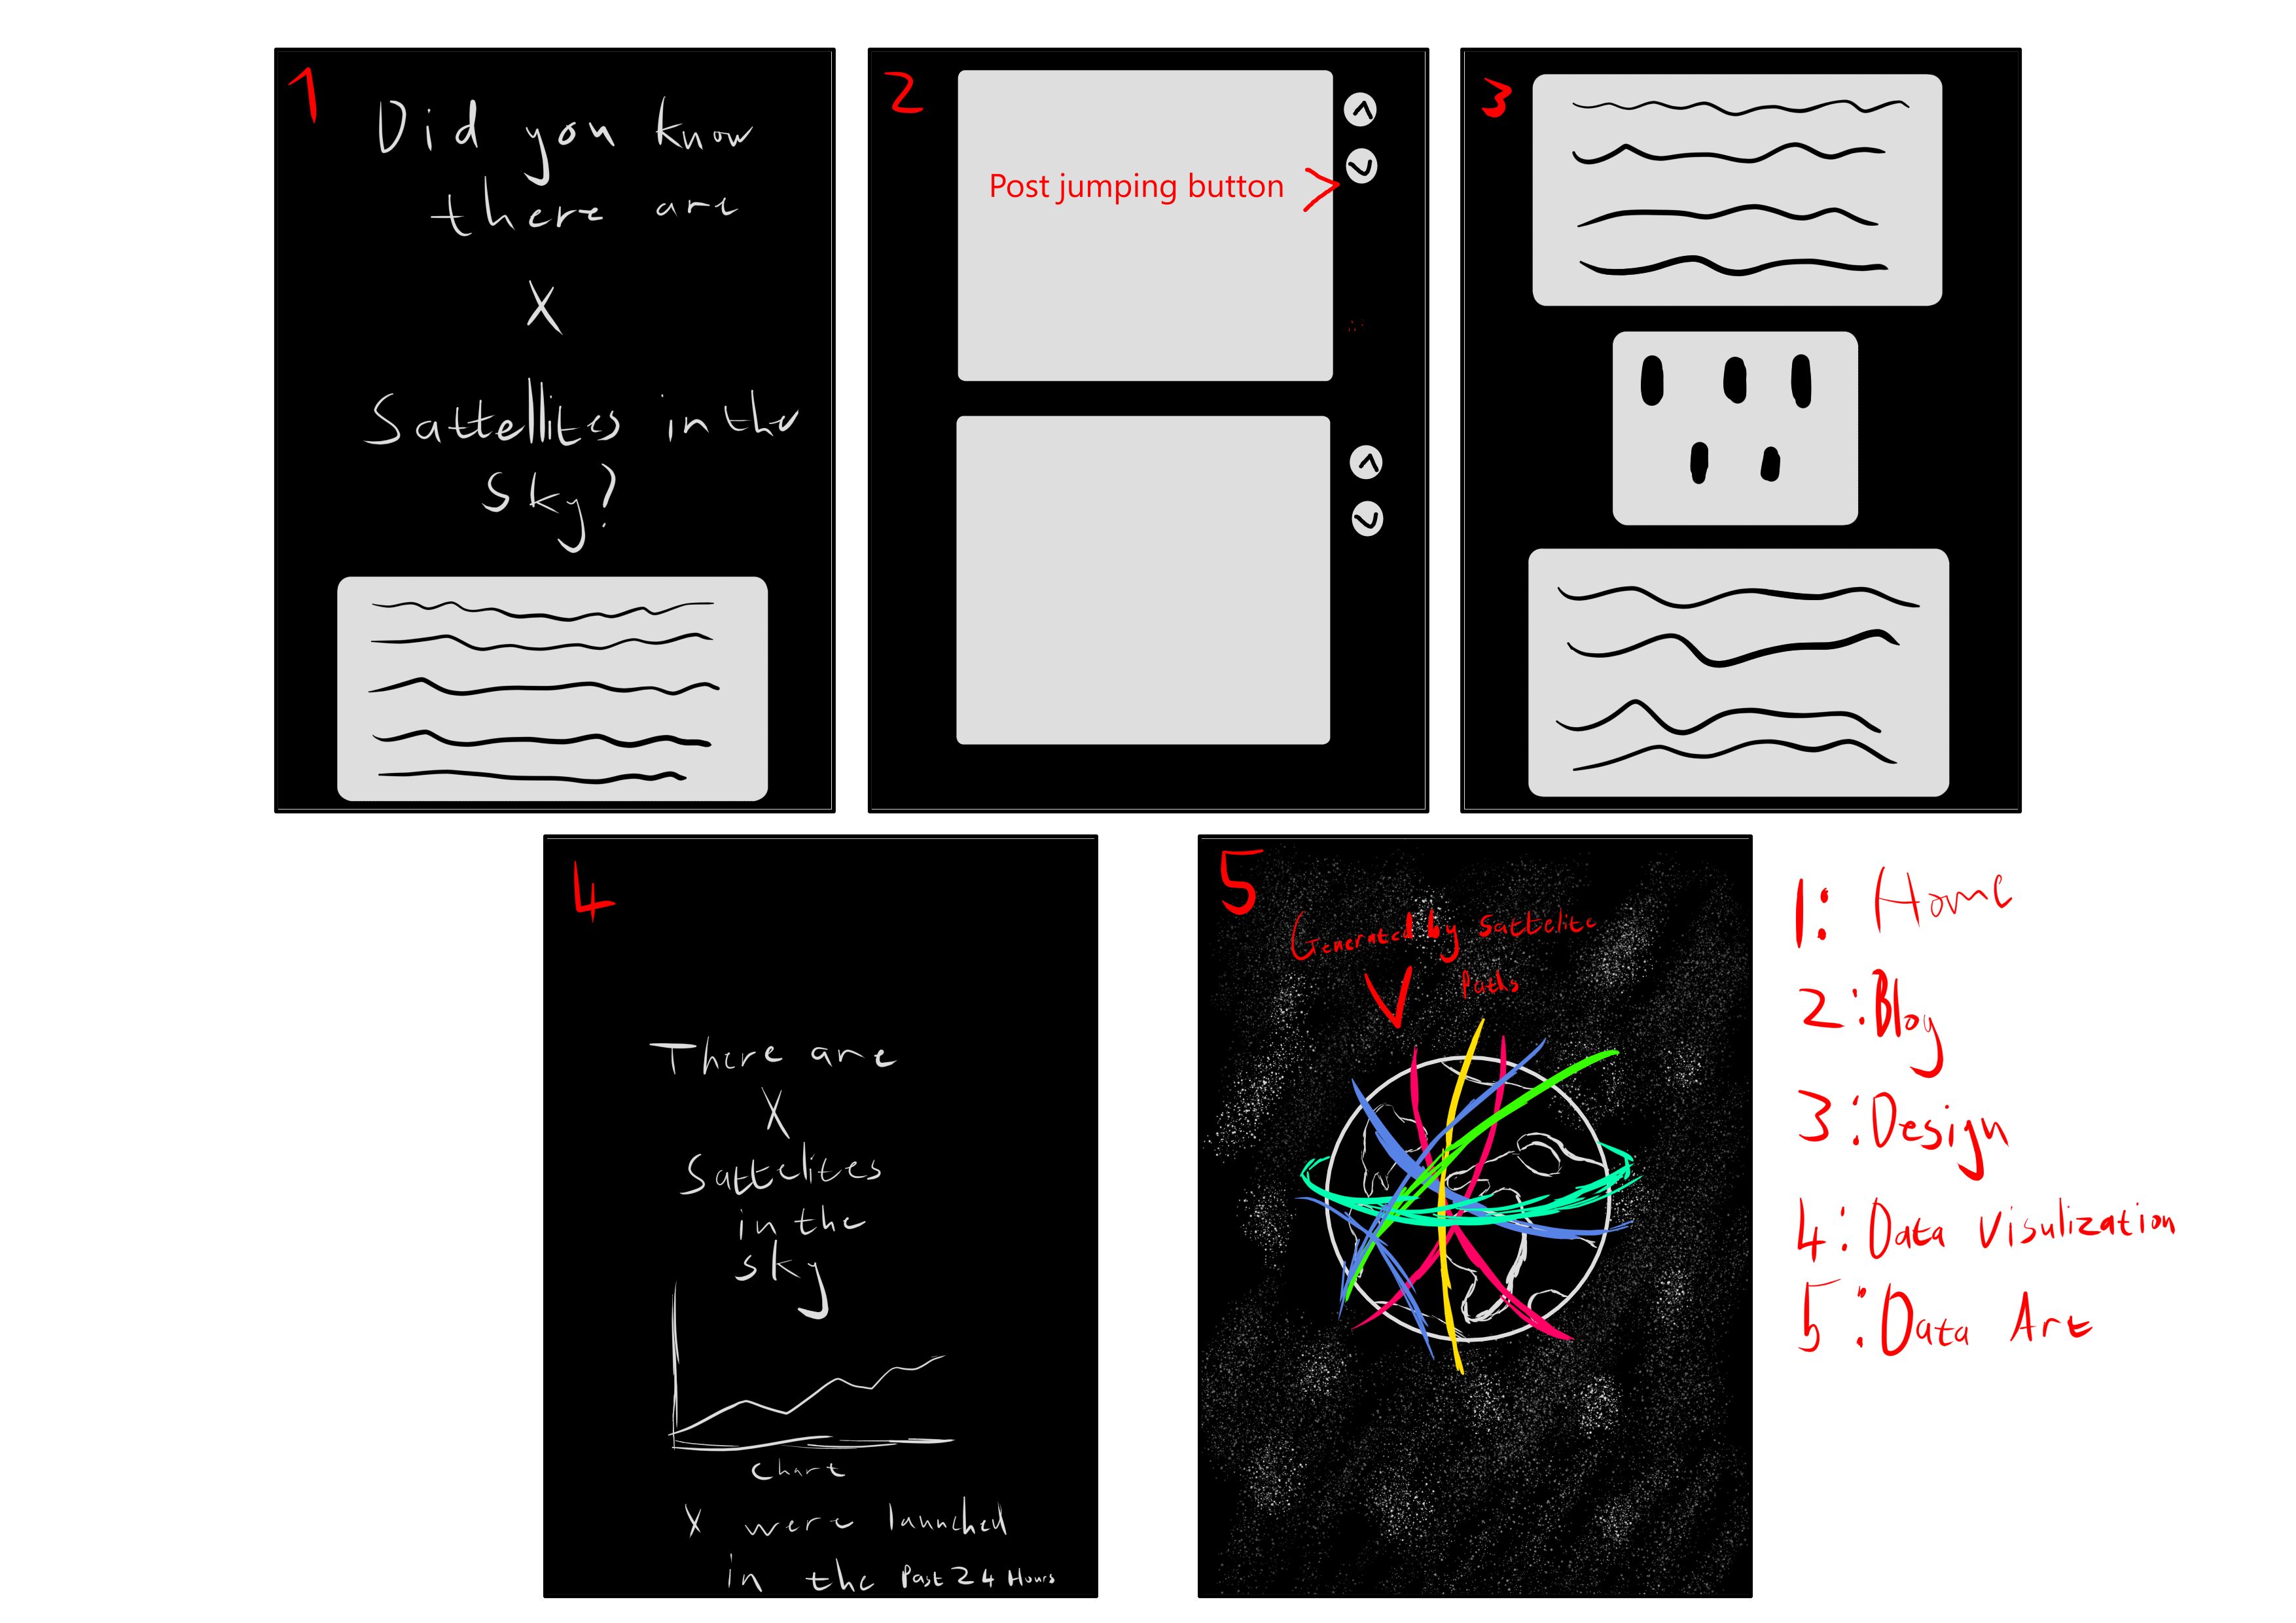 1
Did you know
there are
X
Sattellites in the
sky?
2
Post jumping button >
3
4
There are
X
Sattelites
in the
sky
Chart
X were launched
in the Past 24 Hours
5
Generated by Sattelite
Paths
1: Home
2: Blog
3: Design
4: Data Visulization
5: Data Art